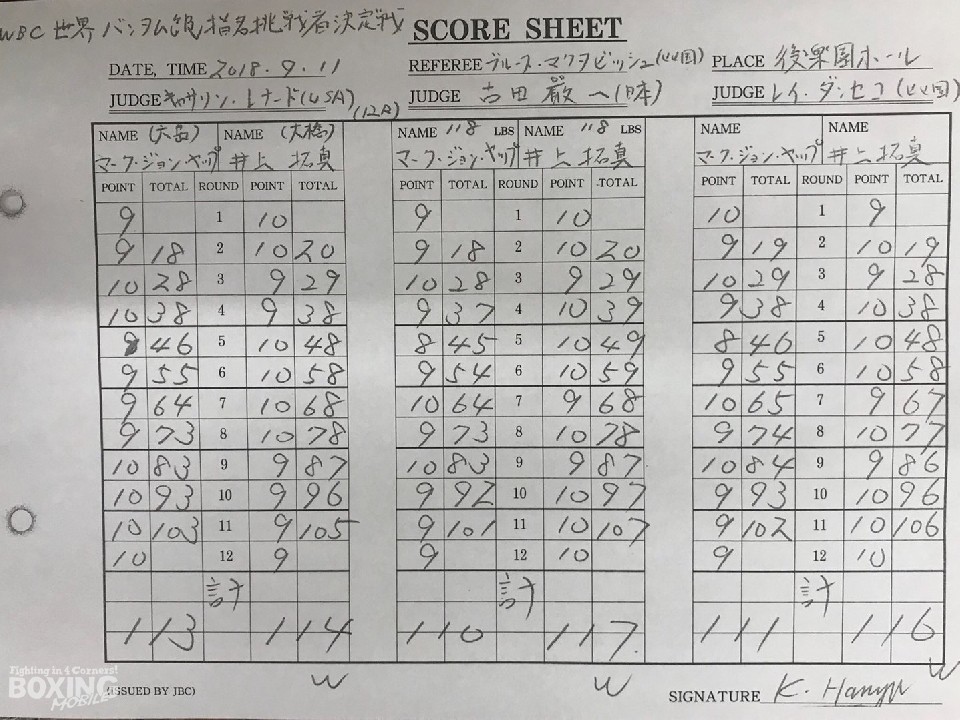 WBC世界バンタム級指名挑戦者決定戦 SCORE SHEET
DATE, TIME 2018.9.11 REFEREE ブルース・マクタビッシュ PLACE 後楽園ホール
JUDGE キャサリン・レナード(USA) (12R) JUDGE 吉田 (日本) JUDGE レイ・ダンセコ
NAME (六島) NAME (大橋) NAME 118 LBS NAME 118 LBS NAME NAME
マーク・ジョン・ヤップ 井上 拓真 マーク・ジョン・ヤップ 井上 拓真 マーク・ジョン・ヤップ 井上拓真
POINT TOTAL ROUND POINT TOTAL POINT TOTAL ROUND POINT TOTAL POINT TOTAL ROUND POINT TOTAL
9 1 10 9 1 10 10 1 9
9 18 2 10 20 9 18 2 10 20 9 19 2 10 19
10 28 3 9 29 10 28 3 9 29 10 29 3 9 28
10 38 4 9 38 9 37 4 10 39 9 38 4 10 38
8 46 5 10 48 8 45 5 10 49 8 46 5 10 48
9 55 6 10 58 9 54 6 10 59 9 55 6 10 58
9 64 7 10 68 10 64 7 9 68 10 65 7 9 67
9 73 8 10 78 9 73 8 10 78 9 74 8 10 77
10 83 9 9 87 10 83 9 9 87 10 84 9 9 86
10 93 10 9 96 9 92 10 10 97 9 93 10 10 96
10 103 11 9 105 9 101 11 10 107 9 102 11 10 106
10 12 9 9 12 10 9 12 10
計 計 計
113 114 110 117 111 116
W W W
Fighting in 4 Corners!
BOXING
MOBILE
(ISSUED BY JBC) SIGNATURE K.